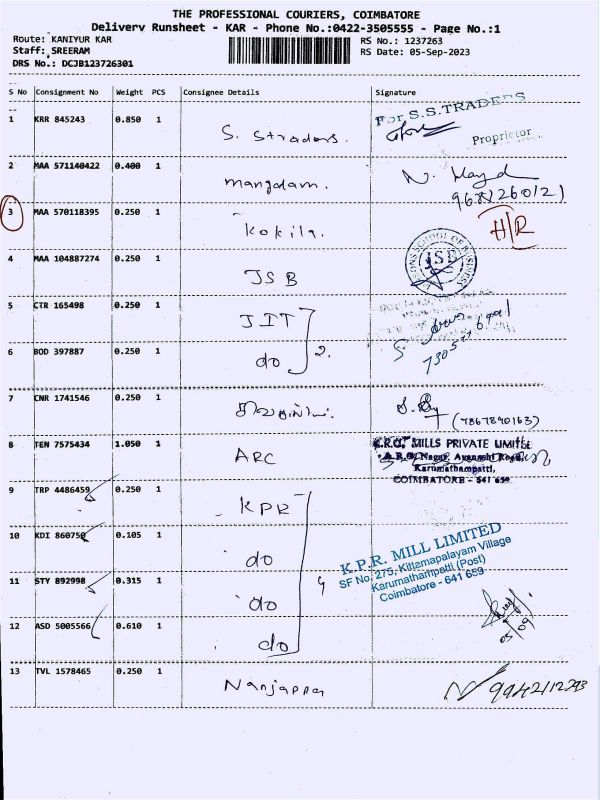 THE PROFESSIONAL COURIERS, COIMBATORE
Delivery Runsheet - KAR - Phone No.:0422-3505555 - Page No.:1
Route: KANIYUR KAR
RS No.: 1237263
Staff: SREERAM
RS Date: 05-Sep-2023
DRS No.: DCJB123726301
S No Consignment No Weight PCS Consignee Details Signature
1 KRR 845243 0.850 1 S. Straders. For S.S.TRADERS
Proprietor
2 MAA 571140422 0.400 1 mangalam.
3 MAA 570118395 0.250 1 Kokila. H/R
4 MAA 104887274 0.250 1 JSB JSB
SCHOOL OF BUSINESS
5 CTR 165498 0.250 1 JIT
6 BOD 397887 0.250 1 do 2.
7 CNR 1741546 0.250 1 (7867890163)
8 TEN 7575434 1.050 1 ARC K.R.G. MILLS PRIVATE LIMITED
Nagar, Avanashi Road,
Karumathampatti,
COIMBATORE - 641 659
9 TRP 4486459 0.250 1 KPR
10 KDI 860750 0.105 1 do K.P.R. MILL LIMITED
SF No. 275, Kittampalayam Village
Karumathampatti (Post)
Coimbatore - 641 659
11 STY 892998 0.315 1 do 4
12 ASD 5005566 0.610 1 do 05/09
13 TVL 1578465 0.250 1 Nanjappa